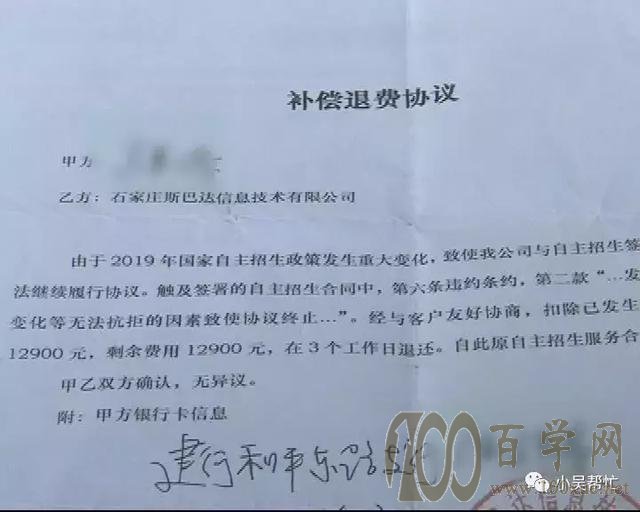 补偿退费协议
甲方
乙方：石家庄斯巴达信息技术有限公司
由于 2019 年国家自主招生政策发生重大变化，致使我公司与自主招生签
法继续履行协议。触及签署的自主招生合同中，第六条违约条约，第二款“…发
变化等无法抗拒的因素致使协议终止…”。经与客户友好协商，扣除已发生
12900 元，剩余费用 12900 元，在 3 个工作日退还。自此原自主招生服务合
甲乙双方确认，无异议。
附：甲方银行卡信息
建行和平东路支
100百学网
小吴帮忙